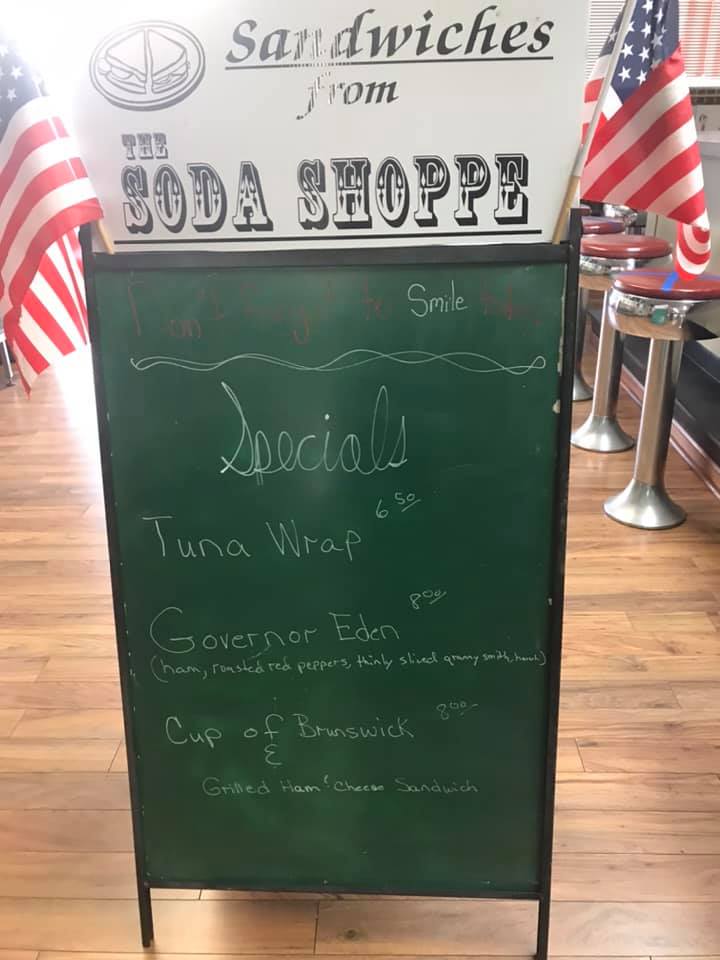 Sandwiches
from
THE
SODA SHOPPE
Don't forget to Smile today
Specials
6.50
Tuna Wrap
8.00
Governor Eden
(ham, roasted red peppers, thinly sliced granny smith, havarti)
Cup of Brunswick 8.00
&
Grilled Ham & Cheese Sandwich